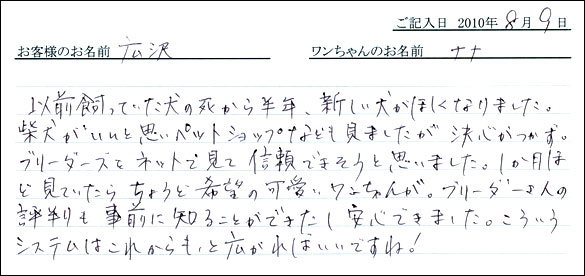 ご記入日 2010年 8月 9日
お客様のお名前 広沢 ワンちゃんのお名前 ナナ
以前飼っていた犬の死から半年、新しい犬がほしくなりました。
柴犬がいいと思いペットショップなども見ましたが 決心がつかず。
ブリーダーズをネットで見て 信頼できそうと思いました。1か月ほ
ど見ていたら ちょうど希望の可愛いワンちゃんが。ブリーダーさんの
評判も 事前に知ることができたし 安心できました。こういう
システムはこれからもっと広がればいいですね!